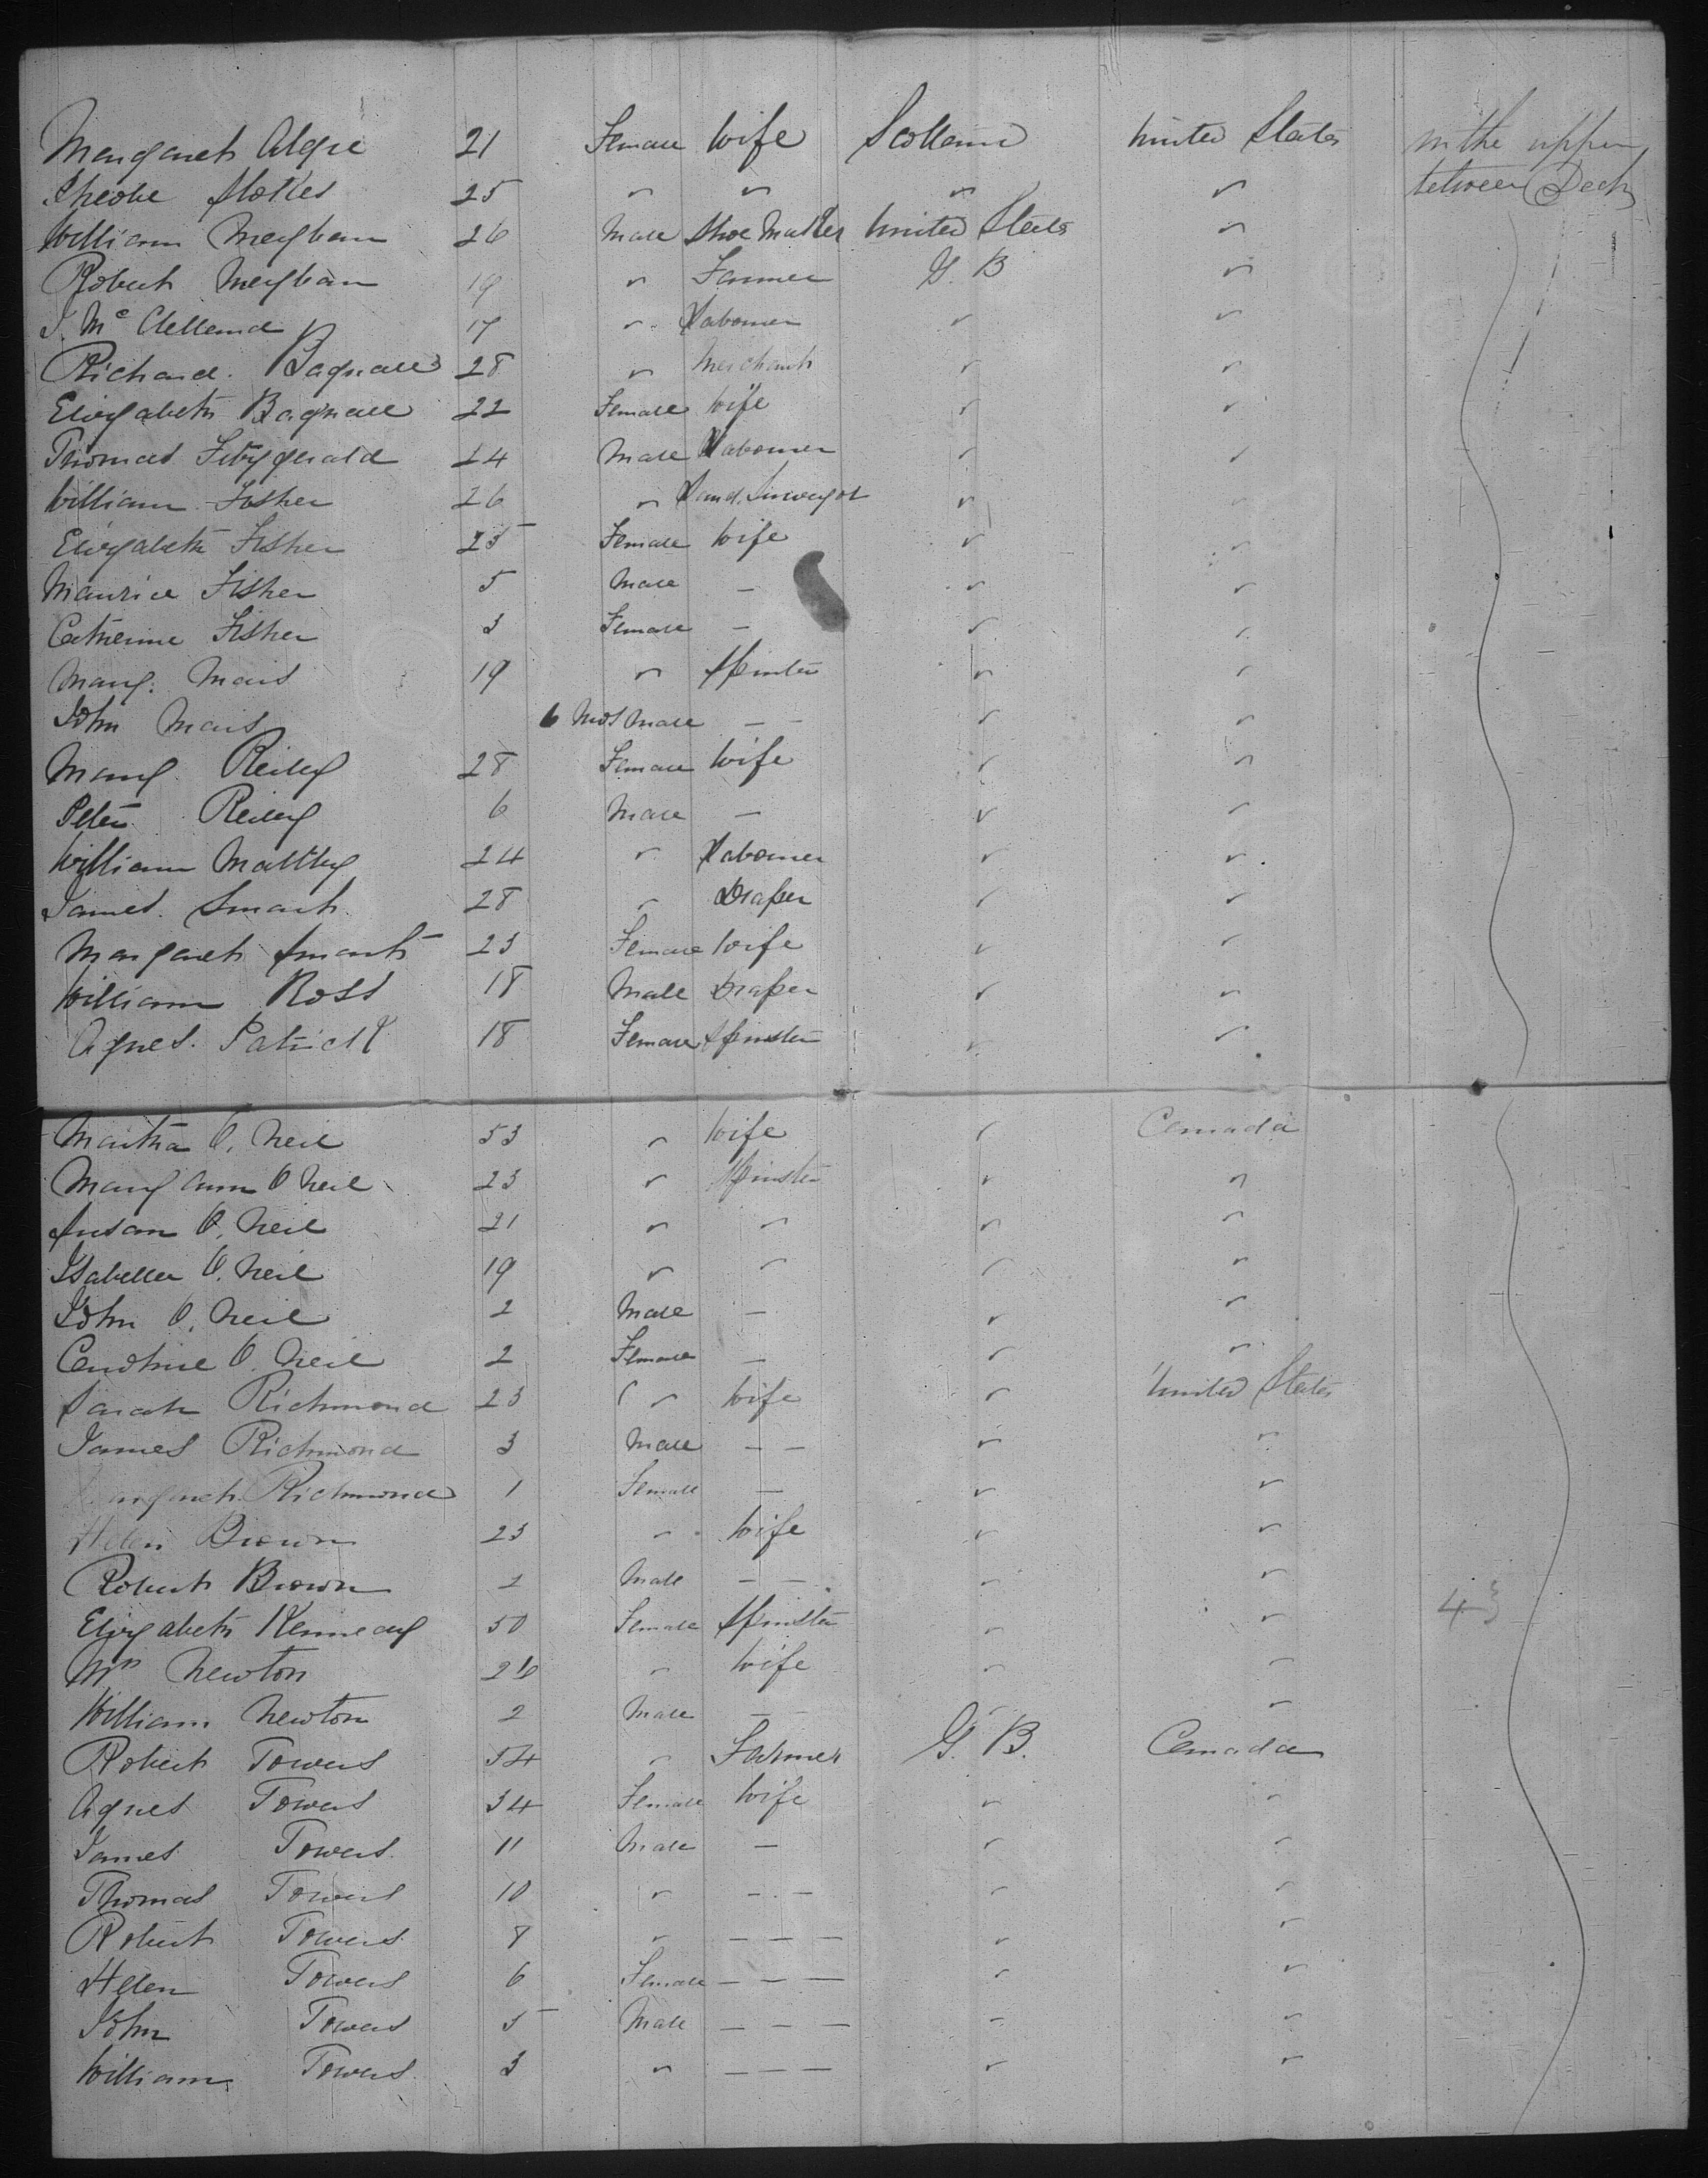 Margaret Algie 21 Female Wife Scotland United States in the upper
Pheobe Stokes 25 " " " " between Deck
William Meighan 26 Male Shoe Maker United States "
Robert Meighan 19 " Farmer G. B "
J. Mc Clelland 17 " Labourer " "
Richard. Bagnall 28 " Merchant " "
Elizabeth Bagnall 22 Female Wife " "
Thomas Fitzgerald 24 Male Labourer " "
William Fisher 26 " Land. Surveyor " "
Elizabeth Fisher 25 Female Wife " "
Maurice Fisher 5 Male — " "
Catherine Fisher 3 Female — " "
Mary. Mais 19 " Spinster " "
John Mais 6 Mos Male — — " "
Mary Reiley 28 Female Wife " "
Peter Reiley 6 Male — " "
William Maltby 24 " Labourer " "
James. Smart. 28 " Draper " "
Margaret Smart 23 Female Wife " "
William Ross 18 Male Draper " "
Agnes. Patrick 18 Female Spinster " "
Martha O. Neil 53 " Wife " Canada
Mary Ann O Neil 23 " Spinster " "
Susan O. Neil 21 " " " "
Isabella O. Neil 19 " " " "
John O. Neil 2 Male — " "
Caroline O. Neil 2 Female — " "
Sarah Richmond 23 " Wife " United States
James Richmond 3 Male — — " "
Margaret Richmond 1 Female — " "
Helen Brown 23 " Wife " "
Robert Brown 2 Male — — " "
Elizabeth Kennedy 50 Female Spinster " " 43
Mrs Newton 26 " Wife " "
William Newton 2 Male — — " "
Robert Towers 34 " Farmer G. B. Canada
Agnes Towers 34 Female Wife " "
James Towers. 11 Male — " "
Thomas Towers 10 " — — " "
Robert Towers 8 " — — — " "
Helen Towers 6 Female — — — " "
John Towers 5 Male — — — " "
William Towers 3 " — — — " "